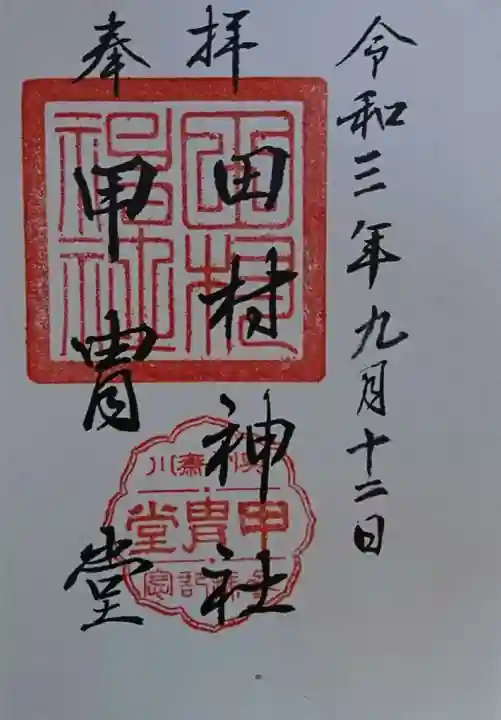 令和三年九月十二日
奉拝
田村神社
甲冑堂
田村神社
斎川
甲冑堂